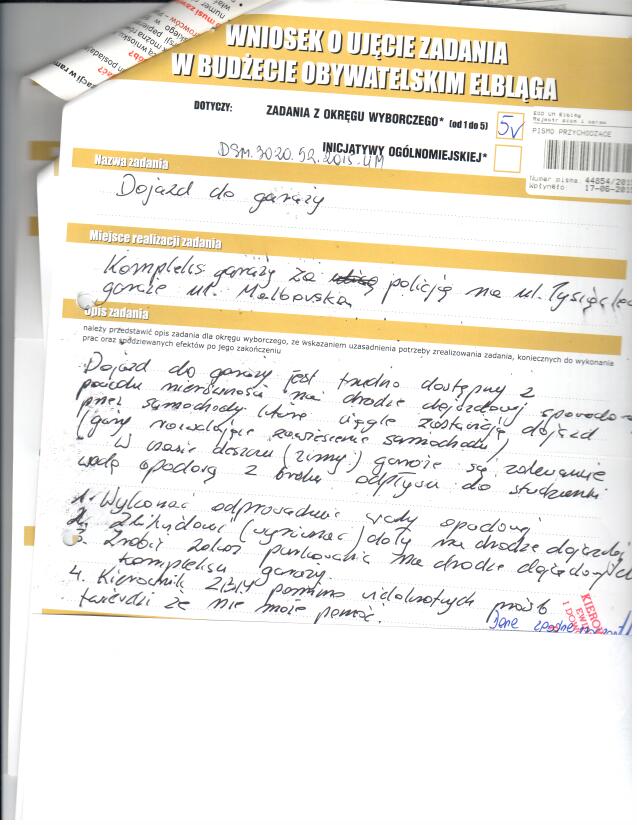 WNIOSEK O UJĘCIE ZADANIA
W BUDŻECIE OBYWATELSKIM ELBLĄGA
DOTYCZY:
ZADANIA Z OKRĘGU WYBORCZEGO* (od 1 do 5)
5v
INICJATYWY OGÓLNOMIEJSKIEJ*
EOD UM Elbląg
PISMO PRZYCHODZĄCE
Numer pisma: 44854/201
Wpłynęło: 17-06-201
DSM.3020.52.2015.UM
Nazwa zadania
Dojazd do garaży
Miejsce realizacji zadania
Kompleks garaży za policją na ul. Tysiącle
garaże ul. Malborska
Opis zadania
należy przedstawić opis zadania dla okręgu wyborczego, ze wskazaniem uzasadnienia potrzeby zrealizowania zadania, koniecznych do wykonania
prac oraz spodziewanych efektów po jego zakończeniu
Dojazd do garaży jest trudno dostępny z
powodu nierówności na drodze dojazdowej spowodo
przez samochody które ciągle zastawiają dojazd
W czasie deszczu (zimy) garaże są zalewane
wodą opadową z braku odpływu do studzienki
1. Wykonać odprowadzenie wody opadowej
2. (wyrównać) doły na drodze dojazdowej
3. Zrobić zakaz parkowania na drodze
kompleksu garaży.
4. Kierownik pomimo wielokrotnych próśb
twierdzi że nie może pomóc.
KIERO